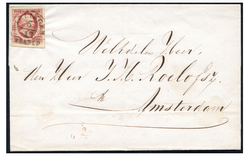 Weledelen Heer,
den Heer J. H. Roelofsz.
te
Amsterdam